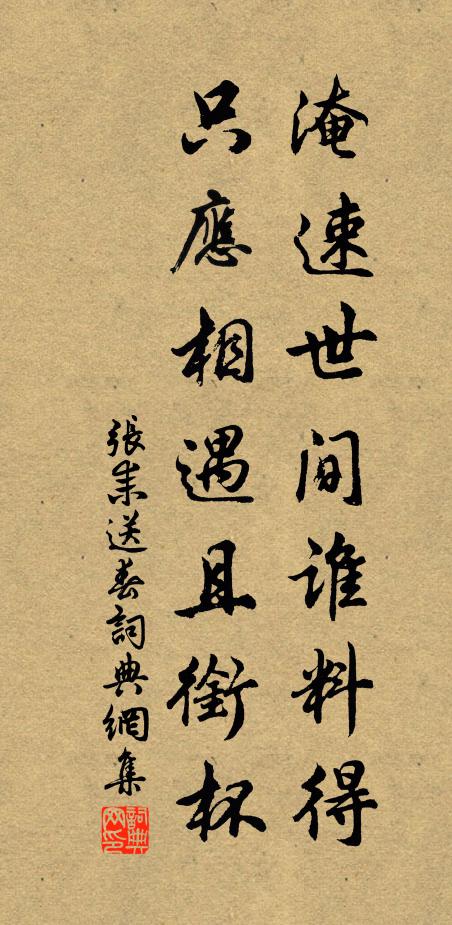 淹速世間誰料得
只應相遇且銜杯
張耒送春詞典網集
詞典網印